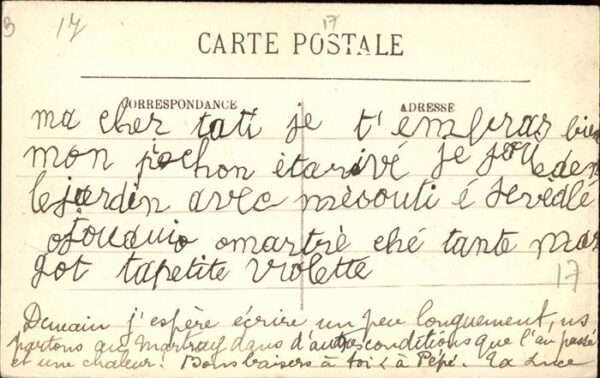 3 17 17
CARTE POSTALE
CORRESPONDANCE ADRESSE
ma cher tati je t'embras bien
mon pochon étarivé je joue den
le jardin avec mesouti é
omartrè ché tante mar
got tapetite violette
17
Demain j'espère écrire un peu longuement, ns
partons au dans d'autres conditions que l'an passé
et une chaleur! Bons baisers à toi & à Pépé. Ta Luce